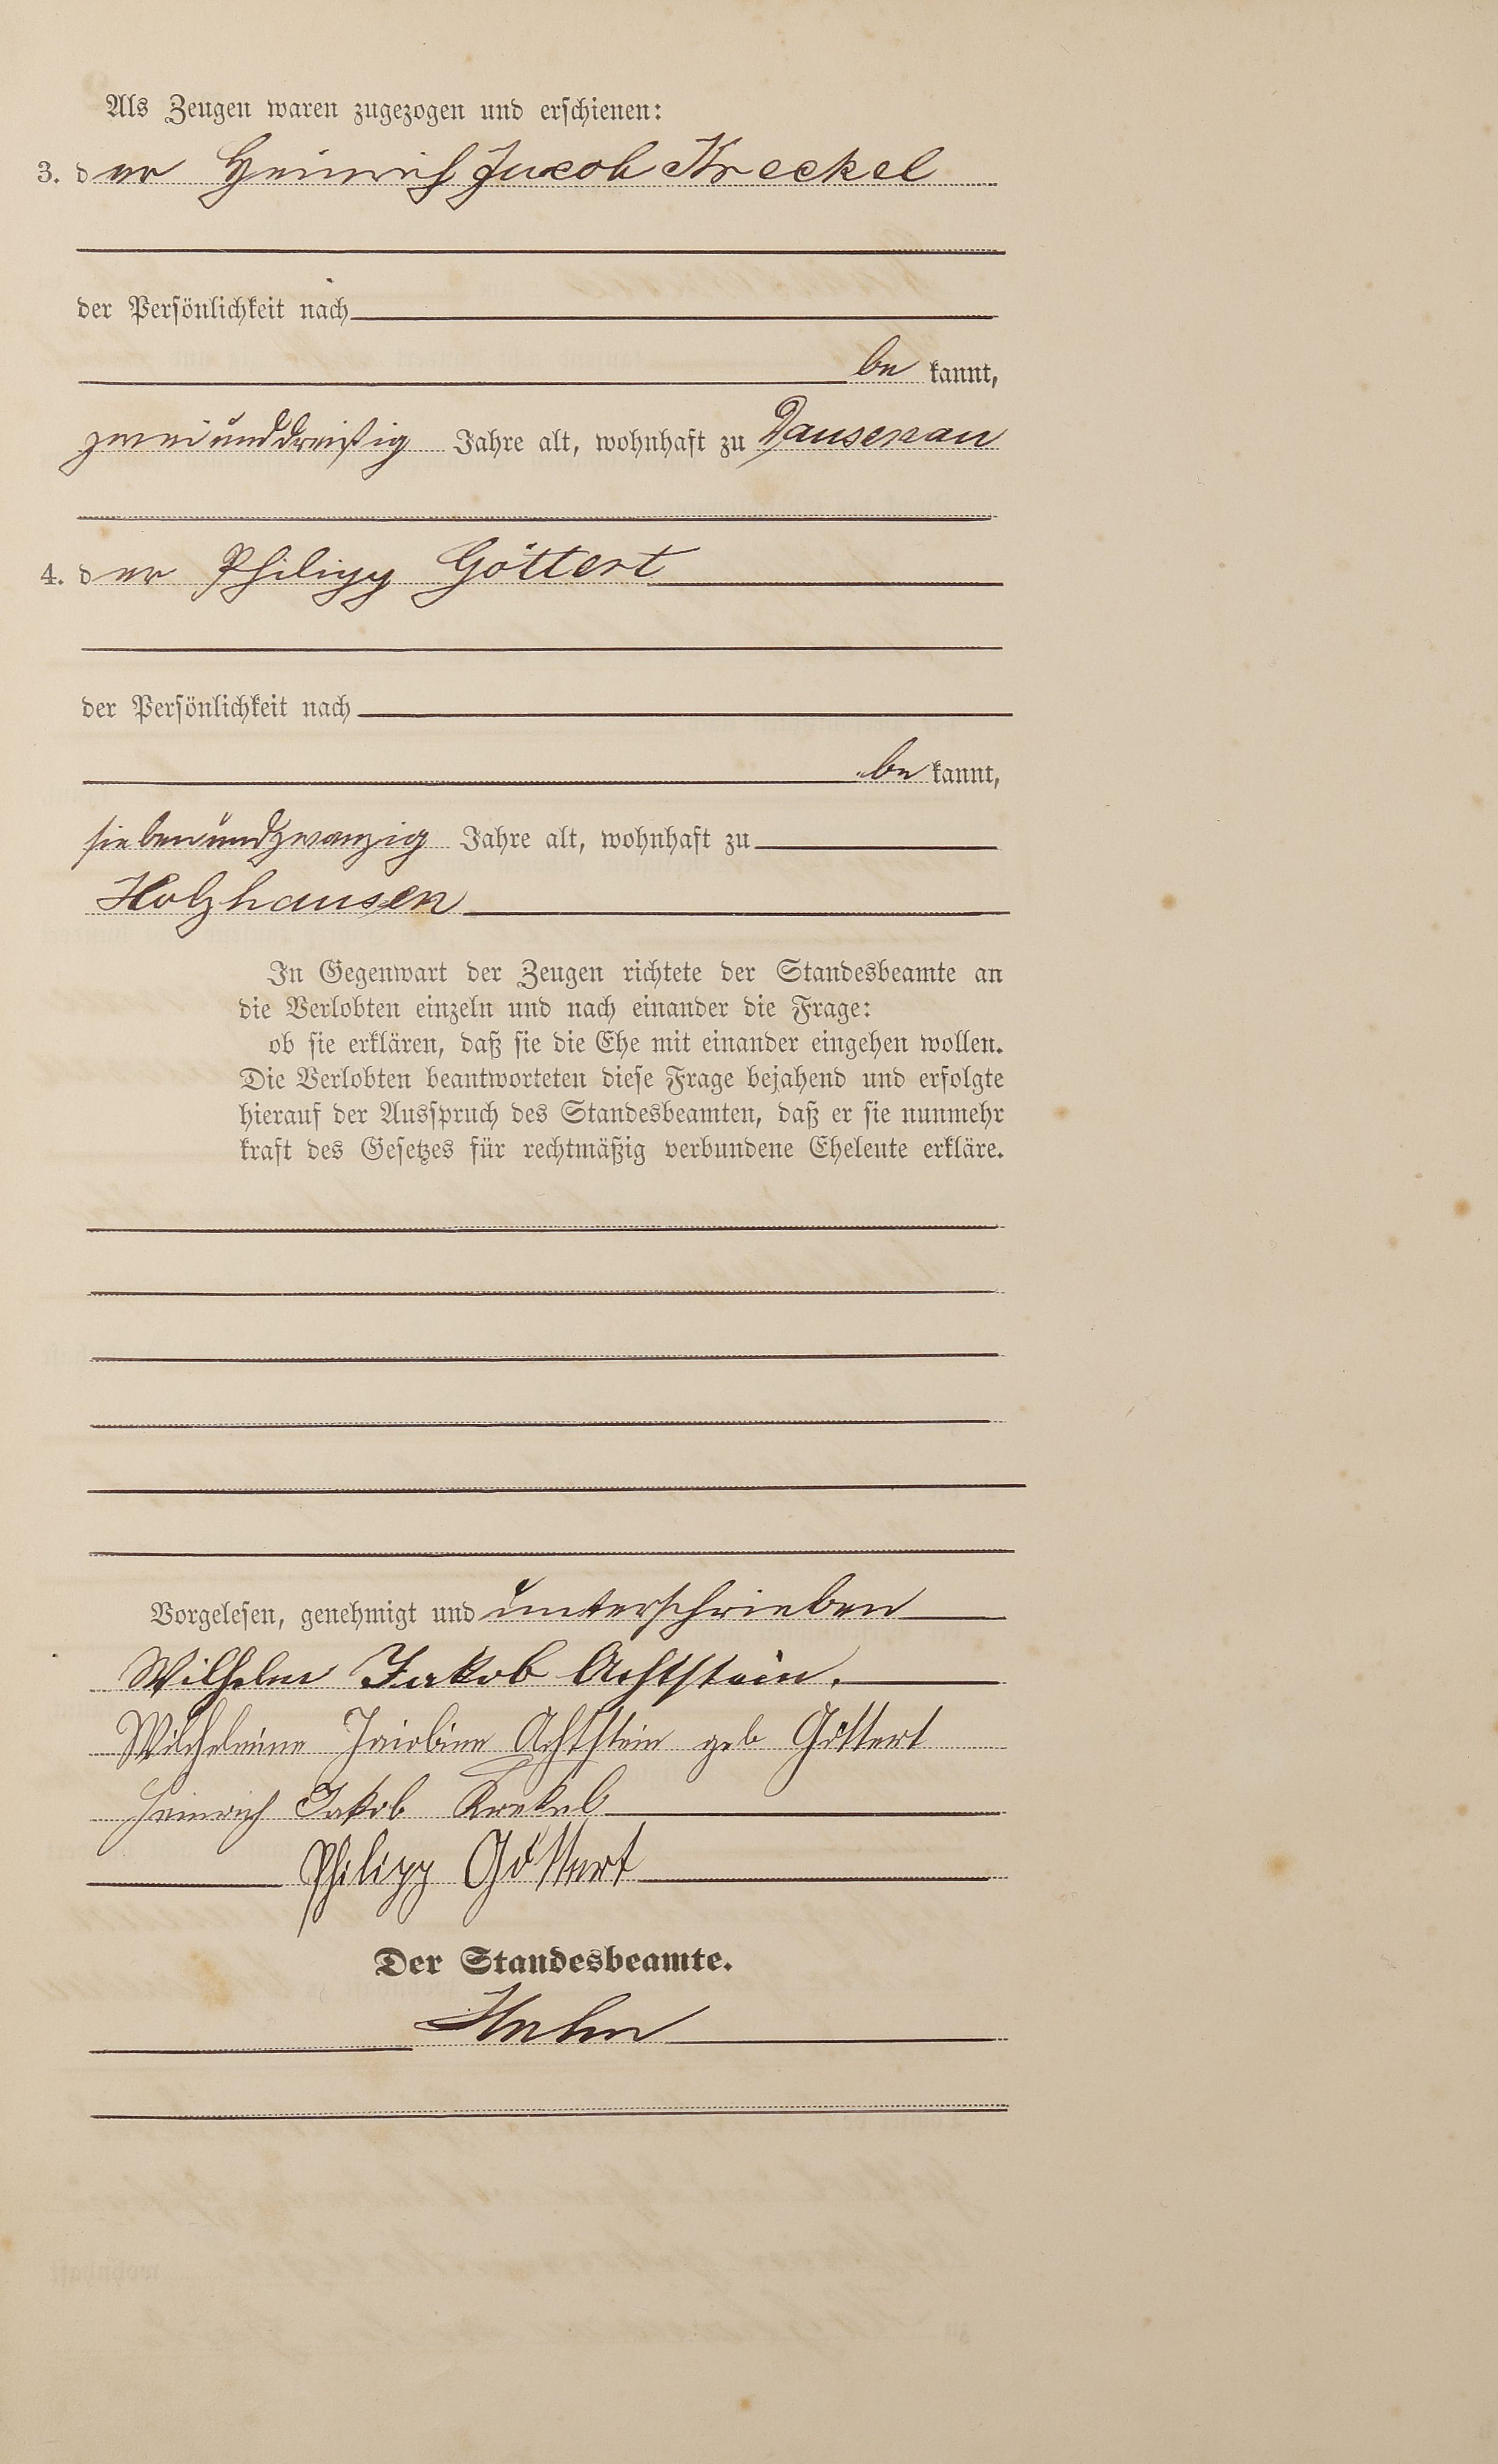 Als Zeugen waren zugezogen und erschienen:
3. der Heinrich Jacob Kreckel
der Persönlichkeit nach
be kannt,
zweiunddreißig Jahre alt, wohnhaft zu Dausenau
4. der Philipp Göttert
der Persönlichkeit nach
be kannt,
siebenundzwanzig Jahre alt, wohnhaft zu
Holzhausen
In Gegenwart der Zeugen richtete der Standesbeamte an
die Verlobten einzeln und nach einander die Frage:
ob sie erklären, daß sie die Ehe mit einander eingehen wollen.
Die Verlobten beantworteten diese Frage bejahend und erfolgte
hierauf der Ausspruch des Standesbeamten, daß er sie nunmehr
kraft des Gesetzes für rechtmäßig verbundene Eheleute erkläre.
Vorgelesen, genehmigt und unterschrieben
Wilhelm Jakob Achtstein.
Wilhelmine Jacobine Achtstein geb Göttert
Heinrich Jakob Krekel
Philipp Göttert
Der Standesbeamte.